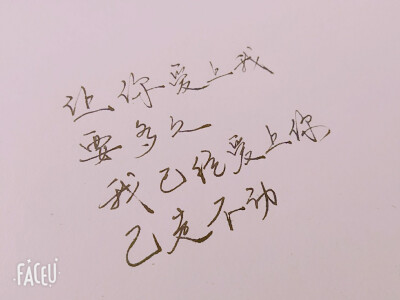 让你爱上我
要多久
我已经爱上你
已走不动
FACEU